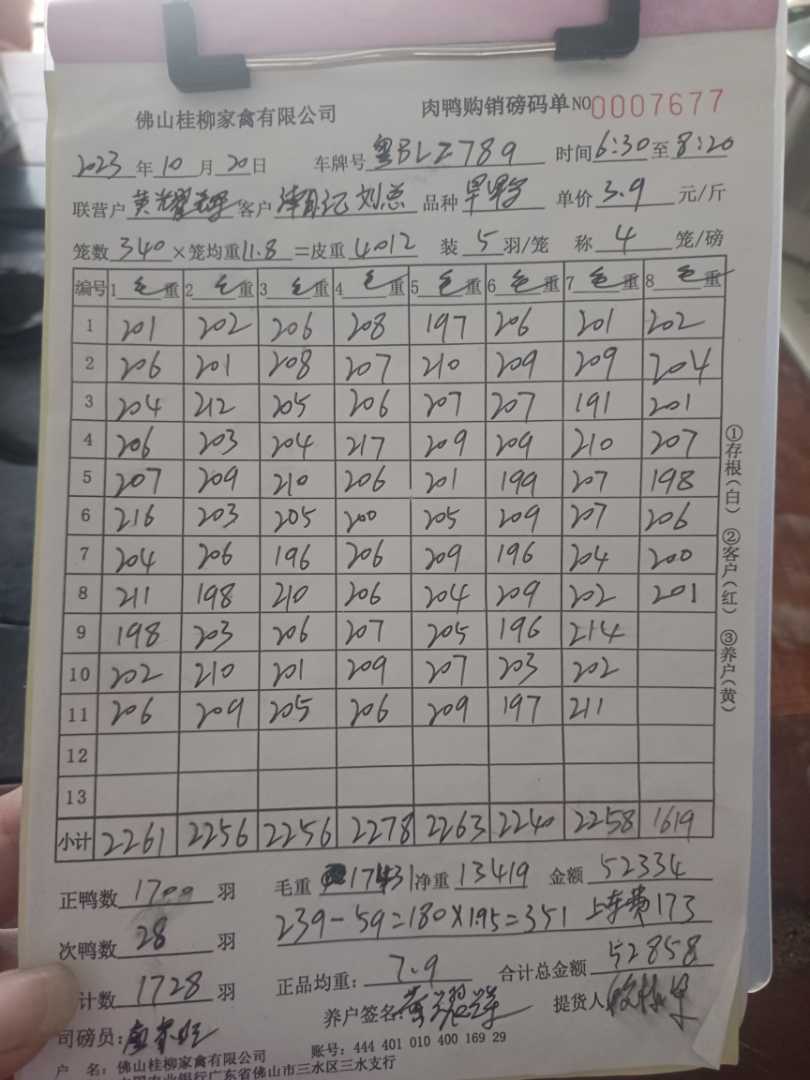 佛山桂柳家禽有限公司 肉鸭购销磅码单 NO 0007677
2023 年 10 月 20 日 车牌号 粤BLZ789 时间 6:30 至 8:20
联营户 黄耀辉 客户 刘总 品种 单价 3.9 元/斤
笼数 340 × 笼均重 11.8 = 皮重 4012 装 5 羽/笼 称 4 笼/磅
编号 1 毛重 2 毛重 3 毛重 4 毛重 5 毛重 6 毛重 7 毛重 8 毛重
1 201 202 206 208 197 206 201 202
2 206 201 208 207 210 209 209 204
3 204 212 205 206 207 207 191 201
4 206 203 204 217 209 209 210 207
5 207 209 210 206 201 199 207 198
6 216 203 205 200 205 209 207 206
7 204 206 196 206 209 196 204 200
8 211 198 210 206 204 209 202 201
9 198 203 206 207 205 196 214
10 202 210 201 209 207 203 202
11 206 209 205 206 209 197 211
12
13
小计 2261 2256 2256 2278 2263 2240 2258 1619
①存根(白) ②客户(红) ③养户(黄)
正鸭数 1700 羽 毛重 17431 净重 13419 金额 52334
239-59=180×1.95=351 上车费173
次鸭数 28 羽
计数 1728 羽 正品均重: 7.9 合计总金额 52858
司磅员: 养户签名: 黄耀辉 提货人
户 名: 佛山桂柳家禽有限公司 账号: 444 401 010 400 169 29
中国农业银行广东省佛山市三水区三水支行